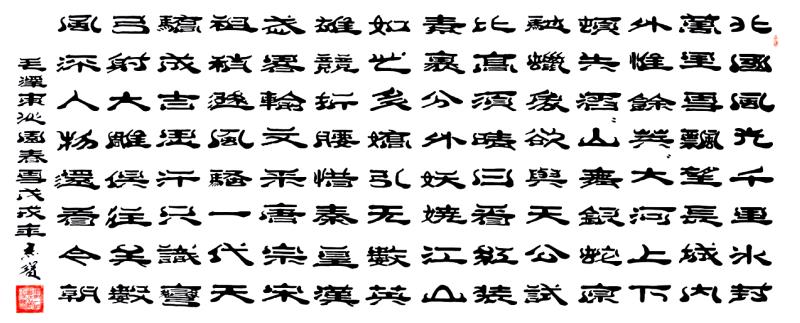 北國風光千里冰封
萬里雪飄望長城內
外惟餘莽〻大河上下
頓失滔〻山舞銀蛇原
馳蠟象欲與天公試
比高須晴日看紅裝
素裹分外妖嬈江山
如此多嬌引无數英
雄競折腰惜秦皇漢
武略輸文采唐宗宋
祖稍遜風騷一代天
驕成吉思汗只識彎
弓射大雕俱往矣數
風流人物還看今朝
毛澤東沁園春雪戊戌年